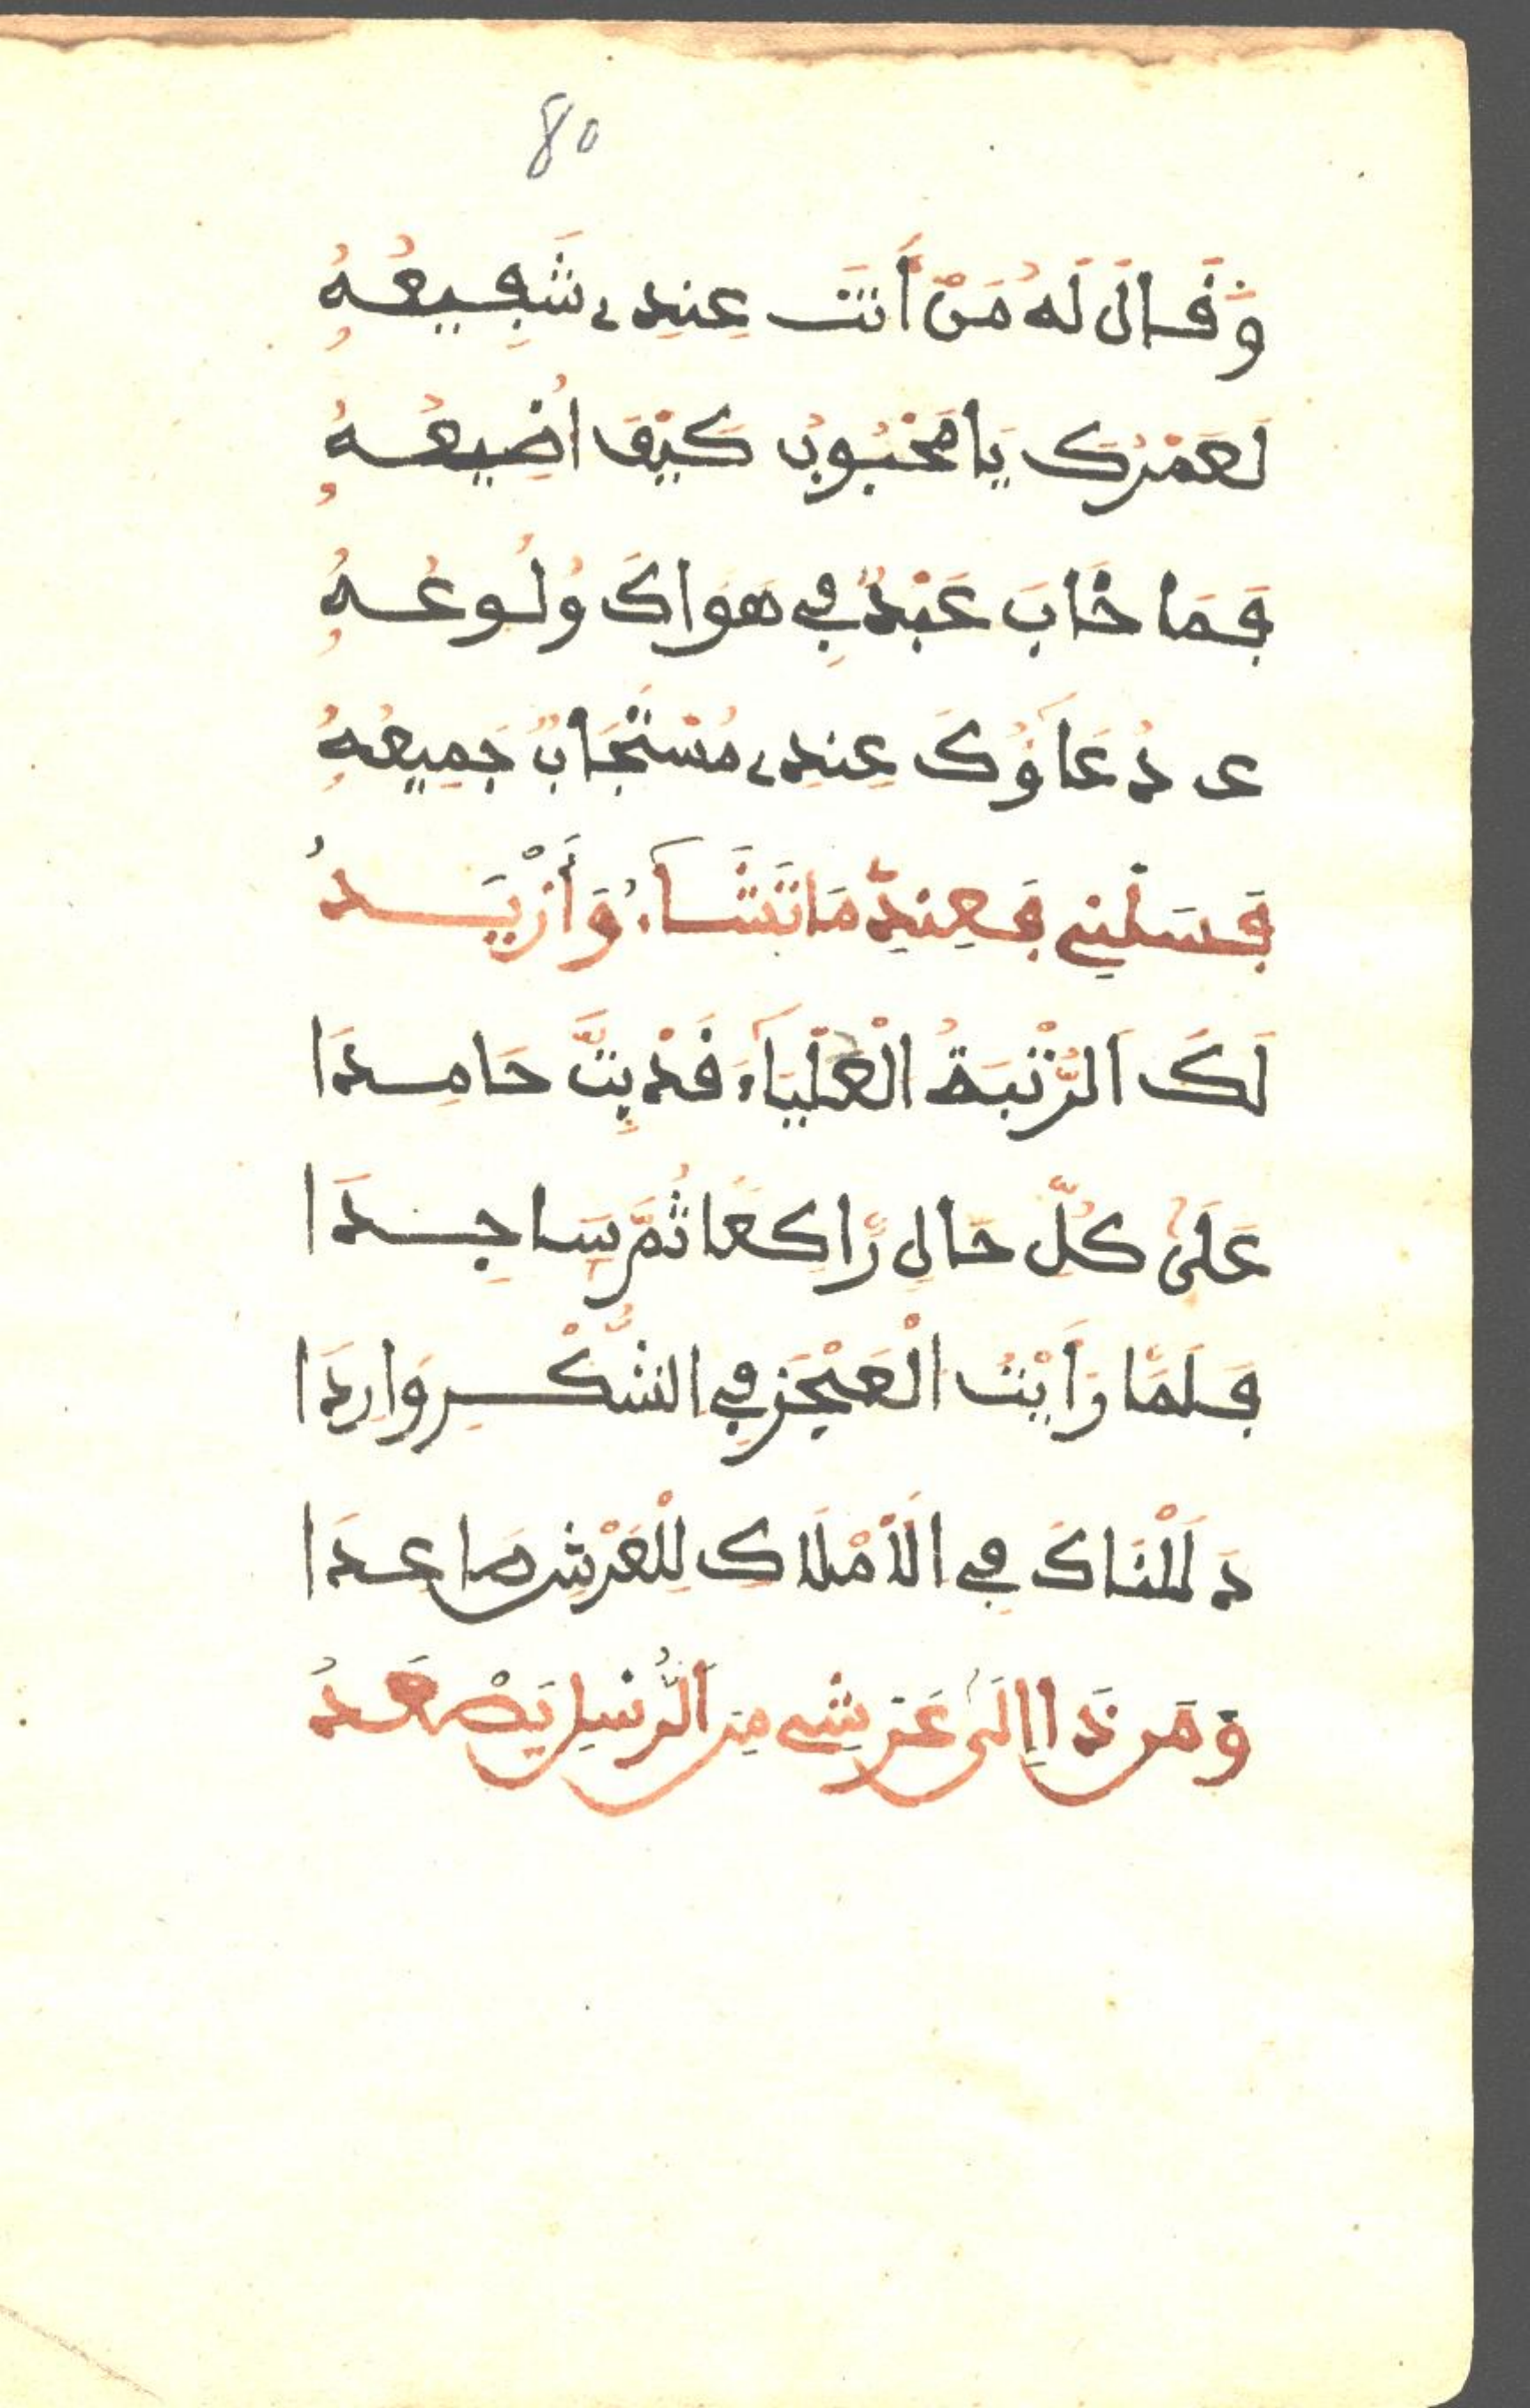 80
وَقَالَ لَهُ مَنْ أَنْتَ عِنْدِے شَفِيعُهُ
لَعَمْرُكَ يَا مَحْبُوبُ كَيْفَ اُضِيعُهُ
فَمَا خَابَ عَبْدٌ فِي هَوَاكَ وُلُوعُهُ
دُعَاؤُكَ عِنْدِے مُسْتَجَابٌ جَمِيعُهُ
فَسَلْنِي فَعِنْدِي مَا تَشَآءُ وَأَزْيَدُ
لَكَ الرُّتْبَةُ الْعَلْيَآءُ قَدْ بِتَّ حَامِدَا
عَلَى كُلِّ حَالٍ رَّاكِعًا ثُمَّ سَاجِدَا
فَلَمَّا رَأَيْتُ الْعَجْزَ فِي الشُّكْرِ وَارِدَا
دَلَلْنَاكَ فِي الَامْلَاكِ لِلْعَرْشِ صَاعِدَا
وَمَن ذَا إِلَى عَرْشِي مِنَ الرُّسْلِ يَصْعَدُ